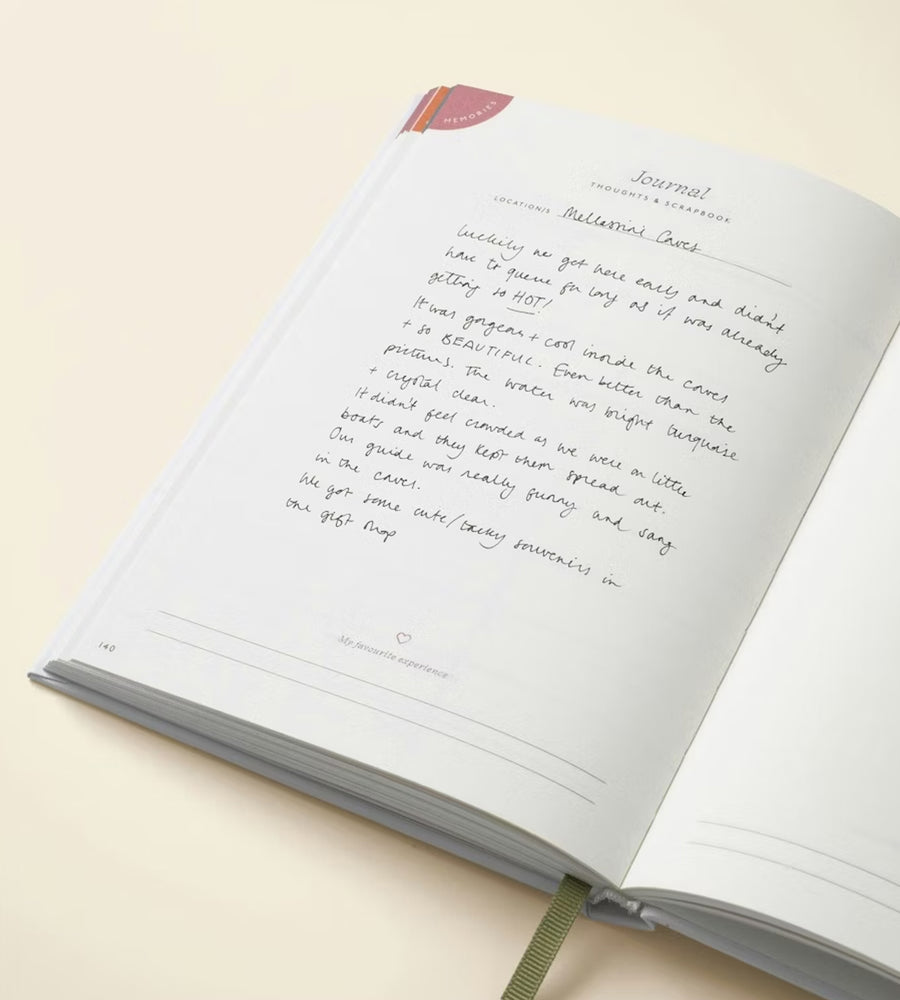 MEMORIES
Journal
THOUGHTS & SCRAPBOOK
LOCATION/S Mellassini Caves
luckily we got here early and didn't
have to queue for long as it was already
getting so HOT!
It was gorgeous + cool inside the caves
+ so BEAUTIFUL. Even better than the
pictures. The water was bright turquoise
+ crystal clear.
It didn't feel crowded as we were on little
boats and they kept them spread out.
Our guide was really funny and sang
in the caves.
We got some cute/tacky souvenirs in
the gift shop
My favourite experience
140